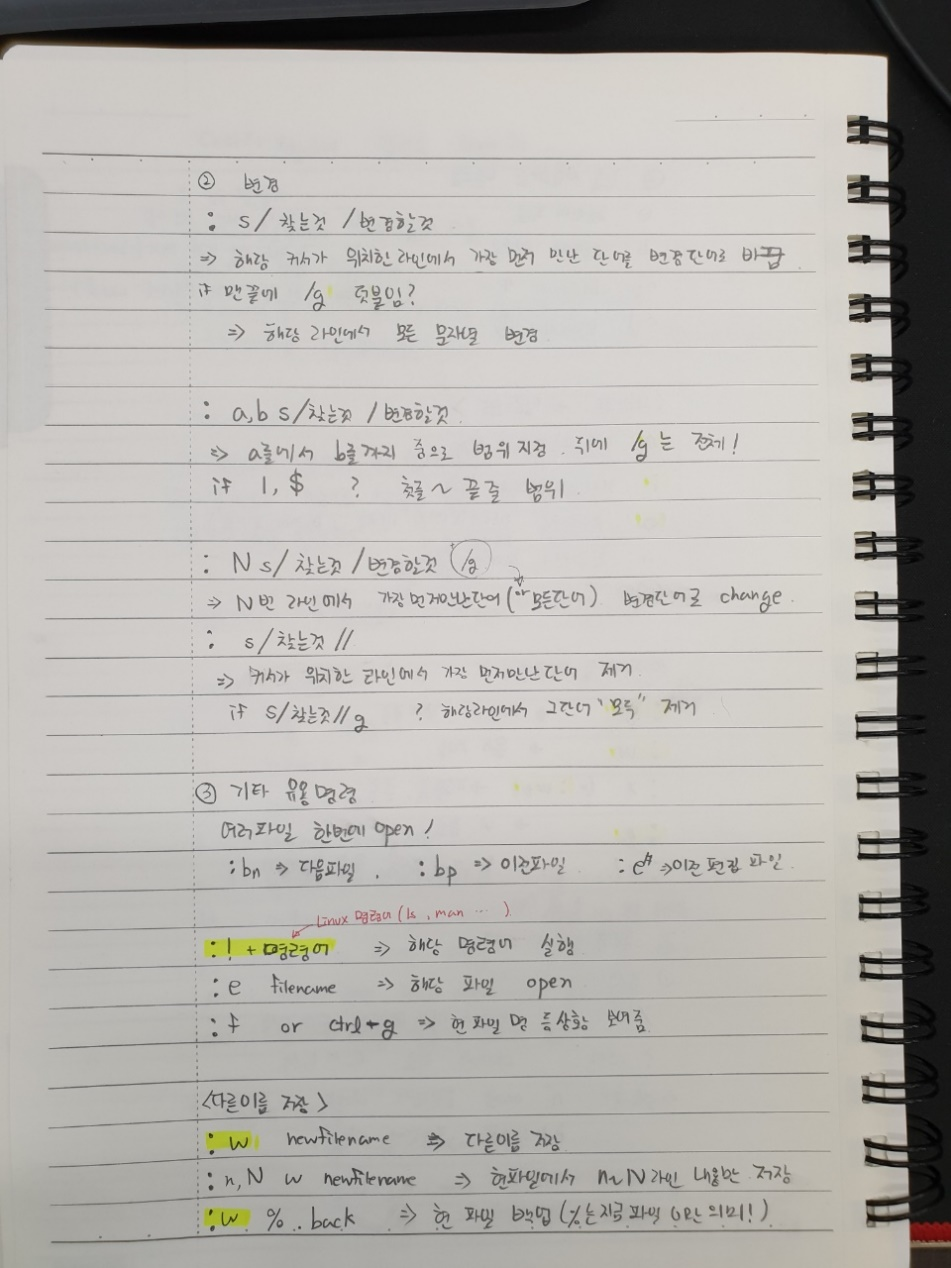 ② 변경
: s/찾는것/변경할것
⇒ 해당 커서가 위치한 라인에서 가장 먼저 만난 단어를 변경단어로 바꿈
if 맨끝에 /g 덧붙임?
⇒ 해당 라인에서 모든 문자열 변경
: a,b s/찾는것/변경할것
⇒ a줄에서 b줄까지 줄으로 범위지정. 뒤에 /g는 전체!
if 1,$ ? 첫줄 ~ 끝줄 범위
: N s/찾는것/변경할것 /g
⇒ N번 라인에서 가장먼저만난단어(or 모든단어) 변경단어로 change.
: s/찾는것//
⇒ 커서가 위치한 라인에서 가장 먼저만난단어 제거
if s/찾는것//g ? 해당라인에서 그단어 "모두" 제거
③ 기타 유용명령
여러파일 한번에 open!
:bn ⇒ 다음파일. :bp ⇒ 이전파일 :e# ⇒이전 편집 파일.
Linux 명령어(ls, man …)
:! + 명령어 ⇒ 해당 명령어 실행
:e filename ⇒ 해당 파일 open
:f or ctrl+g ⇒ 현 파일 명 등상황 보여줌.
<다른이름 저장>
:w newfilename ⇒ 다른이름 저장
:n,N w newfilename ⇒ 현파일에서 n~N라인 내용만 저장
:w %.back ⇒ 현 파일 백업(%는지금 파일 의미!)